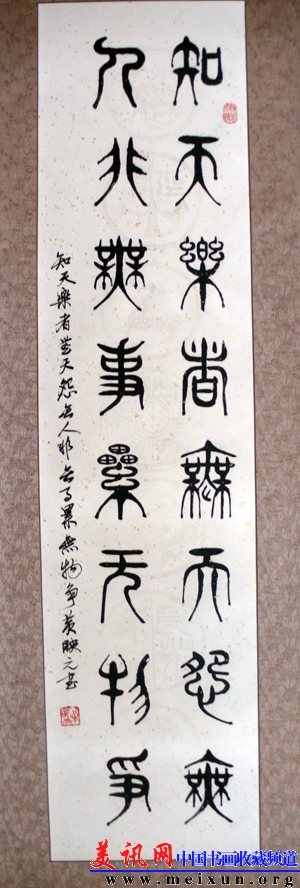 知天樂者無天怨無
人非無事累无物爭
知天樂者無天怨無人非無事累無物爭 映元書
美讯网 中国书画收藏频道
www.meixun.org